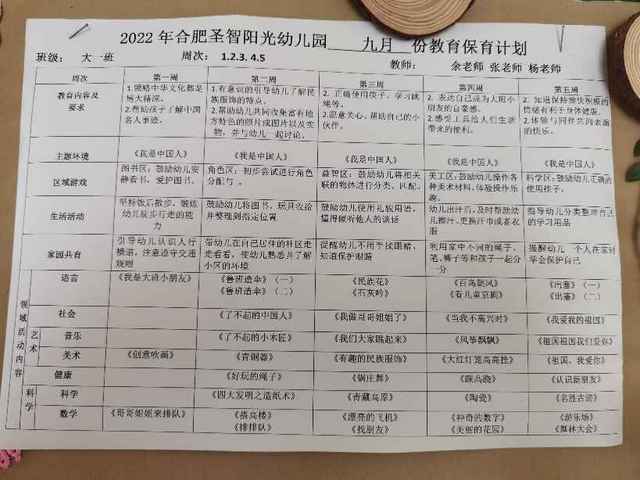 2022年合肥圣智阳光幼儿园 九月 份教育保育计划
班级： 大一班 周次： 1.2.3. 4.5 教师： 余老师 张老师 杨老师
周次 第一周 第二周 第三周 第四周 第五周
教育内容及要求
1.领略中华文化都是博大精深。
2.帮助孩子了解中国名人事迹。
1.有意识的引导幼儿了解民族服饰的特点。
2.帮助幼儿共同收集富有地方特色的照片或图片以及实物，并与幼儿一起讨论。
1. 正确使用筷子，学习跳绳等。
2.愿意关心、帮助自己的小伙伴。
2. 表达自己成为大班小朋友的自豪感。
2. 感受工具给人们生活带来的便利。
2. 知道保持愉快积极的情绪有利于身体健康。
2. 体验与同伴共同表演的快乐。
主题环境 《我是中国人》 《我是中国人》 《我是中国人》 《我是中国人》 《我是中国人》
区域游戏
图书区：鼓励幼儿安静看书、爱护图书。
角色区：初步尝试进行角色分配等。
益智区：鼓励幼儿将相关联的物体进行分类、匹配。
美工区：鼓励幼儿操作各种美术材料，体验操作乐趣。
科学区：鼓励幼儿正确的使用筷子。
生活活动
坚持饭后散步，锻炼幼儿徒步行走的能力
鼓励幼儿将图书、玩具收拾并整理到指定位置
鼓励幼儿使用礼貌用语，懂得倾听他人的谈话
幼儿出汗后，及时帮助幼儿擦汗、更换汗巾或者衣服
指导幼儿分类整理自己的学习用品
家园共育
引导幼儿认识人行横道，注意遵守交通规则
带幼儿在自己居住的社区走走看看，使幼儿熟悉并了解小区的环境
提醒幼儿不用手揉眼睛，知道保护眼睛
利用家中不同的绳子、笔、裤子等和孩子一起分一分
提醒幼儿一个人在家时学会保护自己
领域活动内容
语言 《我是大班小朋友》 《鲁班造伞》（一） 《民族花》 《百鸟朝凤》 《出塞》（一）
《鲁班造伞》（二） 《石灰吟》 《看儿童京剧》 《出塞》（二）
社会 《了不起的中国人》 《我做哥哥姐姐了》 《当我不高兴时》 《我爱我的祖国》
艺术
音乐 《了不起的小木匠》 《我们大家跳起来》 《风筝飘飘》 《祖国祖国我们爱你》
美术 《创意吹画》 《青铜器》 《有趣的民族服饰》 《大红灯笼高高挂》 《祖国，我爱你》
健康 《好玩的绳子》 《锅庄舞》 《踩高跷》 《认识新朋友》
科学
科学 《四大发明之造纸术》 《青藏高原》 《陶瓷》 《名胜古迹》
数学 《哥哥姐姐来排队》 《搭高楼》 《漂亮的飞机》 《神奇的数字》 《游乐场》
《排排队》 《找朋友》 《美丽的花园》 《森林大会》